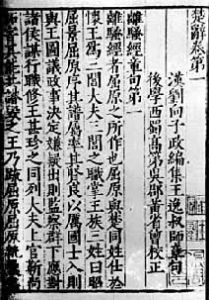 楚辭卷第一
漢劉向子政編集王逸叔師章句
後學西蜀高第吳郡黃省曾校正
離騷經章句第一
離騷經者屈原之所作也屈原與楚同姓仕於
懷王為三閭大夫三閭之職掌王族三姓曰昭
屈景屈原序其譜屬率其賢良以厲國士入則
與王圖議政事決定嫌疑出則監察群下應對
諸侯謀行職修王甚珍之同列大夫上官靳尚
妬害其能共譖毀之王乃疏屈原屈原